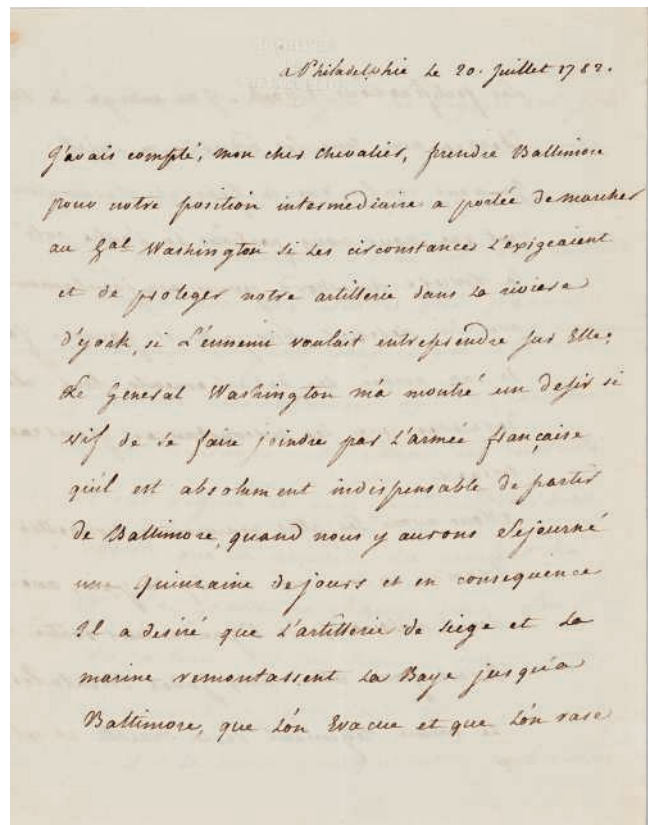 a Philadelphie le 20. Juillet 1782.
J'avais compté, mon cher chevalier, prendre Baltimore
pour notre position intermediaire a portée de marcher
au Gal Washington si les circonstances l'exigeaient
et de proteger notre artillerie dans la riviere
d'york, si L'ennemi voulait entreprendre sur Elle;
Le General Washington m'a montré un desir si
vif de se faire joindre par l'armée française
qu'il est absolument indispensable de partir
de Baltimore, quand nous y aurons Sejourné
une quinzaine de jours et en consequence
Il a desiré que L'artillerie de siege et la
marine remontassent la Baye jusqu'a
Baltimore, que l'on Evacue et que l'on rase